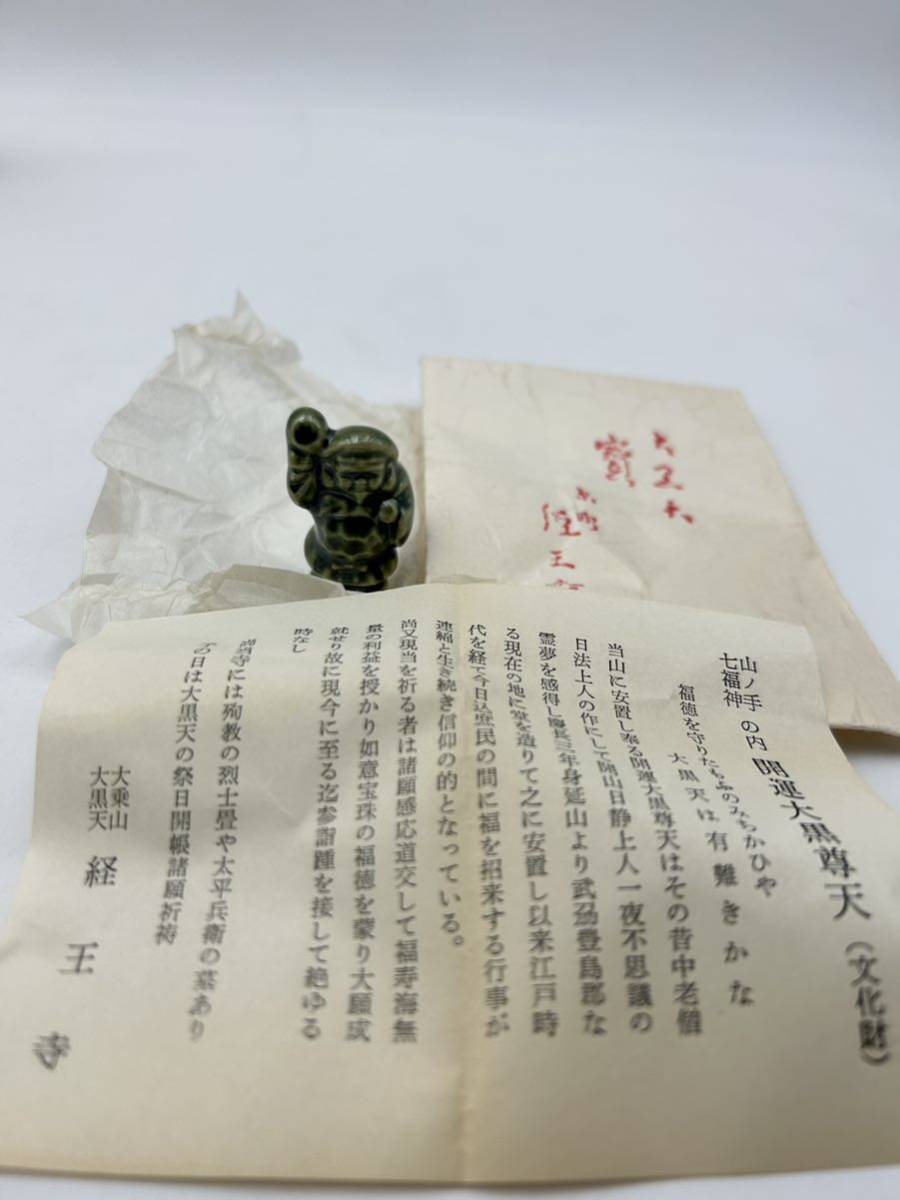 大黒天
寳
経王
山ノ手七福神の内 開運大黒尊天(文化財)
福徳を守りたもふのみちかひや
大黒天は有難きかな
当山に安置し奉る開運大黒尊天はその昔中老僧
日法上人の作にして開山日静上人一夜不思議の
霊夢を感得し慶長三年身延山より武刕豊島郡な
る現在の地に堂を造りて之に安置し以来江戸時
代を経て今日迄庶民の間に福を招来する行事が
連綿と生き続き信仰の的となっている。
尚又現当を祈る者は諸願感応道交して福寿海無
量の利益を授かり如意宝珠の福徳を蒙り大願成
就せり故に現今に至る迄参詣踵を接して絶ゆる
時なし
尚当寺には殉教の烈士畳や太平兵衛の墓あり
の日は大黒天の祭日開帳諸願祈祷
大乗山
大黒天 経王寺